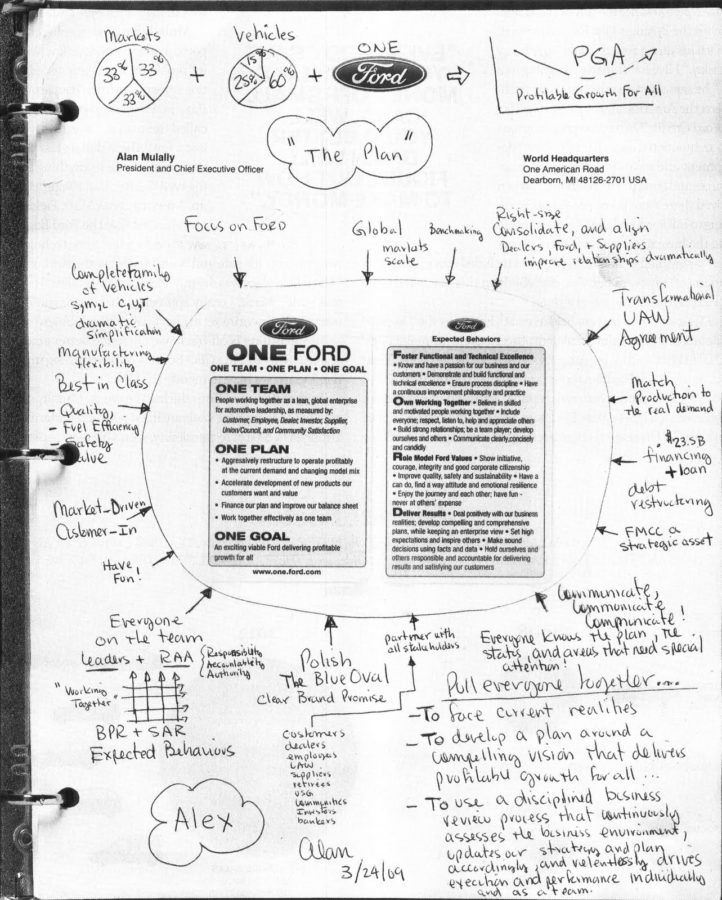 Markets
Vehicles
ONE
33% 33% 33%
15% 25% 60%
+
+
Ford
PGA
Profitable Growth For All
" The Plan "
Alan Mulally
President and Chief Executive Officer
World Headquarters
One American Road
Dearborn, MI 48126-2701 USA
Focus on FORD
Global
markets
scale
Benchmarking
Right-size
Consolidate, and align
Dealers, Ford, + Suppliers
improve relationships dramatically
Complete Family
of Vehicles
S, M, L C, U, T
dramatic
simplification
manufacturing
flexibility
Best in Class
- Quality
- Fuel Efficiency
- Safety
Value
Market-Driven
Customer-In
Have
Fun!
Ford
ONE FORD
ONE TEAM • ONE PLAN • ONE GOAL
ONE TEAM
People working together as a lean, global enterprise
for automotive leadership, as measured by:
Customer, Employee, Dealer, Investor, Supplier,
Union/Council, and Community Satisfaction
ONE PLAN
• Aggressively restructure to operate profitably
at the current demand and changing model mix
• Accelerate development of new products our
customers want and value
• Finance our plan and improve our balance sheet
• Work together effectively as one team
ONE GOAL
An exciting viable Ford delivering profitable
growth for all
www.one.ford.com
Ford
Expected Behaviors
Foster Functional and Technical Excellence
• Know and have a passion for our business and our
customers • Demonstrate and build functional and
technical excellence • Ensure process discipline • Have
a continuous improvement philosophy and practice
Own Working Together • Believe in skilled
and motivated people working together • Include
everyone; respect, listen to, help and appreciate others
• Build strong relationships; be a team player; develop
ourselves and others • Communicate clearly, concisely
and candidly
Role Model Ford Values • Show initiative,
courage, integrity and good corporate citizenship
• Improve quality, safety and sustainability • Have a
can do, find a way attitude and emotional resilience
• Enjoy the journey and each other; have fun -
never at others' expense
Deliver Results • Deal positively with our business
realities; develop compelling and comprehensive
plans, while keeping an enterprise view • Set high
expectations and inspire others • Make sound
decisions using facts and data • Hold ourselves and
others responsible and accountable for delivering
results and satisfying our customers
Transformational
UAW
Agreement
Match
Production to
the real demand
$23.5B
financing
+ loan
debt
restructering
FMCC a
strategic asset
Communicate,
Communicate,
Communicate!
Everyone knows the plan, the
status, and areas that need special
attention!
Everyone
on the team
Leaders + RAA
Responsibility
Accountability
Authority
"Working
Together"
BPR + SAR
Expected Behaviors
Polish
The Blue Oval
Clear Brand Promise
partner with
all stakeholders
Customers
dealers
employees
UAW
suppliers
retirees
USG
Communities
Investors
bankers
Pull everyone together....
- To face current realities
- To develop a plan around a
compelling vision that delivers
profitable growth for all ...
- To use a disciplined business
review process that continuously
assesses the business environment,
updates our strategy and plan
accordingly, and relentlessly drives
execution and performance individually
and as a team.
Alex
Alan
3/24/09